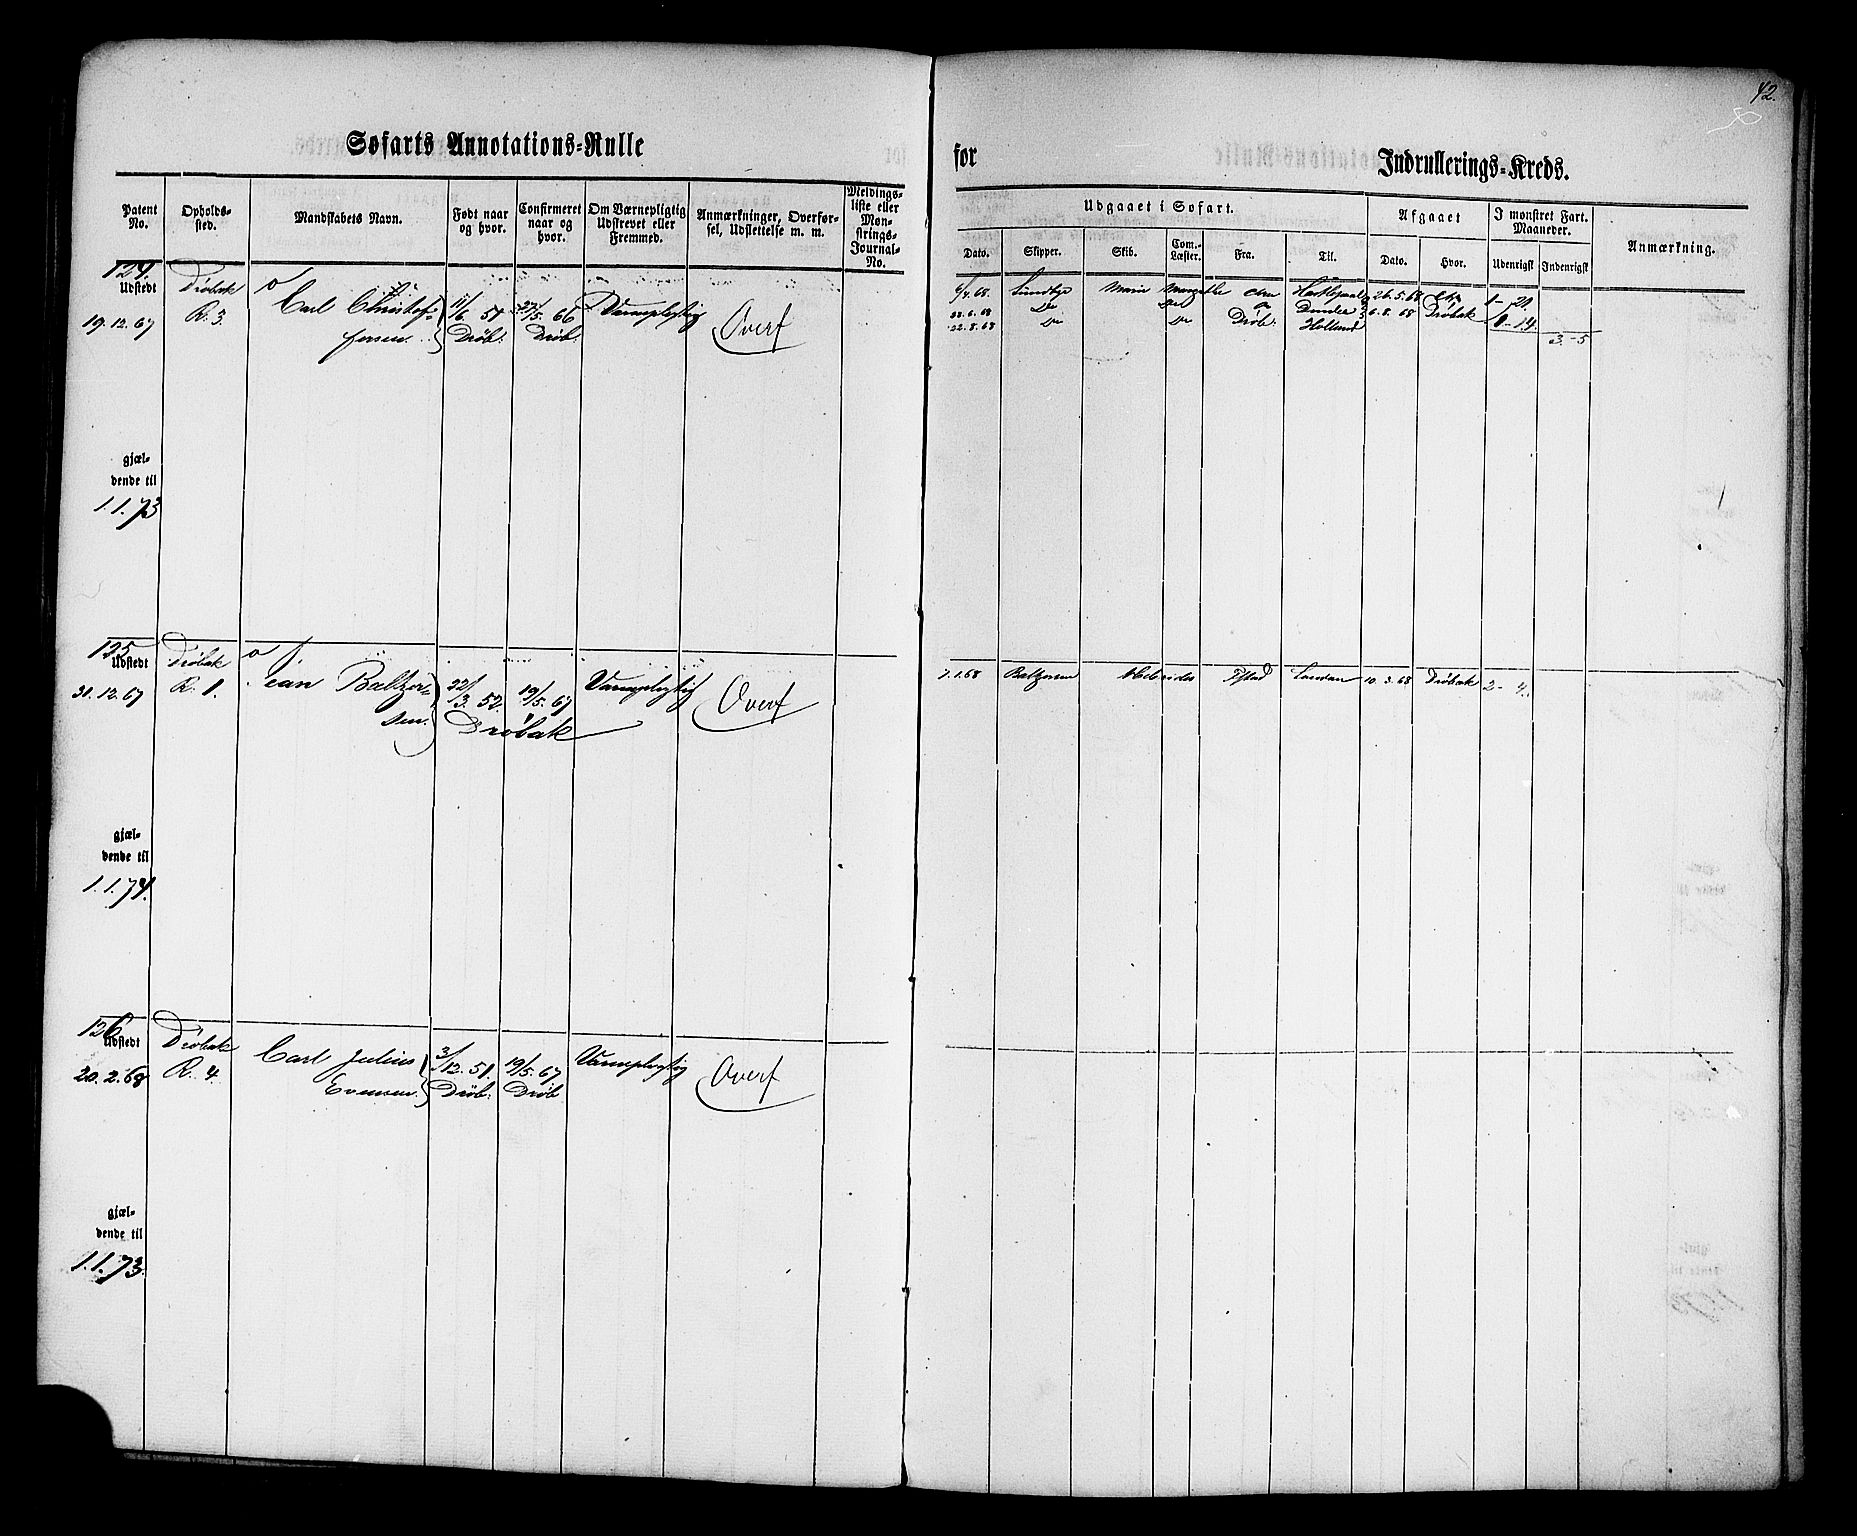 42.
Søfarts Annotations-Rulle
for
Indrullerings-Kreds.
Patent No.
Opholds-sted.
Mandskabets Navn.
Født naar og hvor.
Confirmeret naar og hvor.
Om Værnepligtig Udskrevet eller Fremmed.
Anmærkninger, Overførsel, Udslettelse m. m.
Meldingsliste eller Mønstrings-Journal-No.
Udgaaet i Søfart.
Afgaaet
I mønstret Fart. Maaneder.
Anmærkning.
Dato.
Skipper.
Skib.
Com.-Læster.
Fra.
Til.
Dato.
Hvor.
Udenrigsk
Indenrigsk
124.
Udstedt
19.12.67
Drøbak
R. 3
Carl Christoffersen
11/6 51
Drøb.
27/5 66
Drøb.
Værnepligtig
Overf
4/4.68. Sundbye Marie 26.5.68 1-20
22.6.68 Do Do Dundee 6.8.68 Drøbak 1-14
22.8.68 Do Do Drøb. Holland
3.-5
gjæl-
dende til
1.1.73
125
Udstedt
31.12.67
Drøbak
R. 1.
Jean Baltzersen
22/3. 52.
19/5. 67
Drøbak
Værnepligtig
Overf
7.1.68 Baltzersen Hebrides Ystad London 10.3.68 Drøbak 2-4.
gjæl-
dende til
1.1.74.
126
Udstedt
20.2.68
Drøbak
R. 4.
Carl Julius
Evensen
3/12.51.
Drøb.
19/5.67
Drøb
Værnepligtig
Overf
gjæl-
dende til
1.1.73.